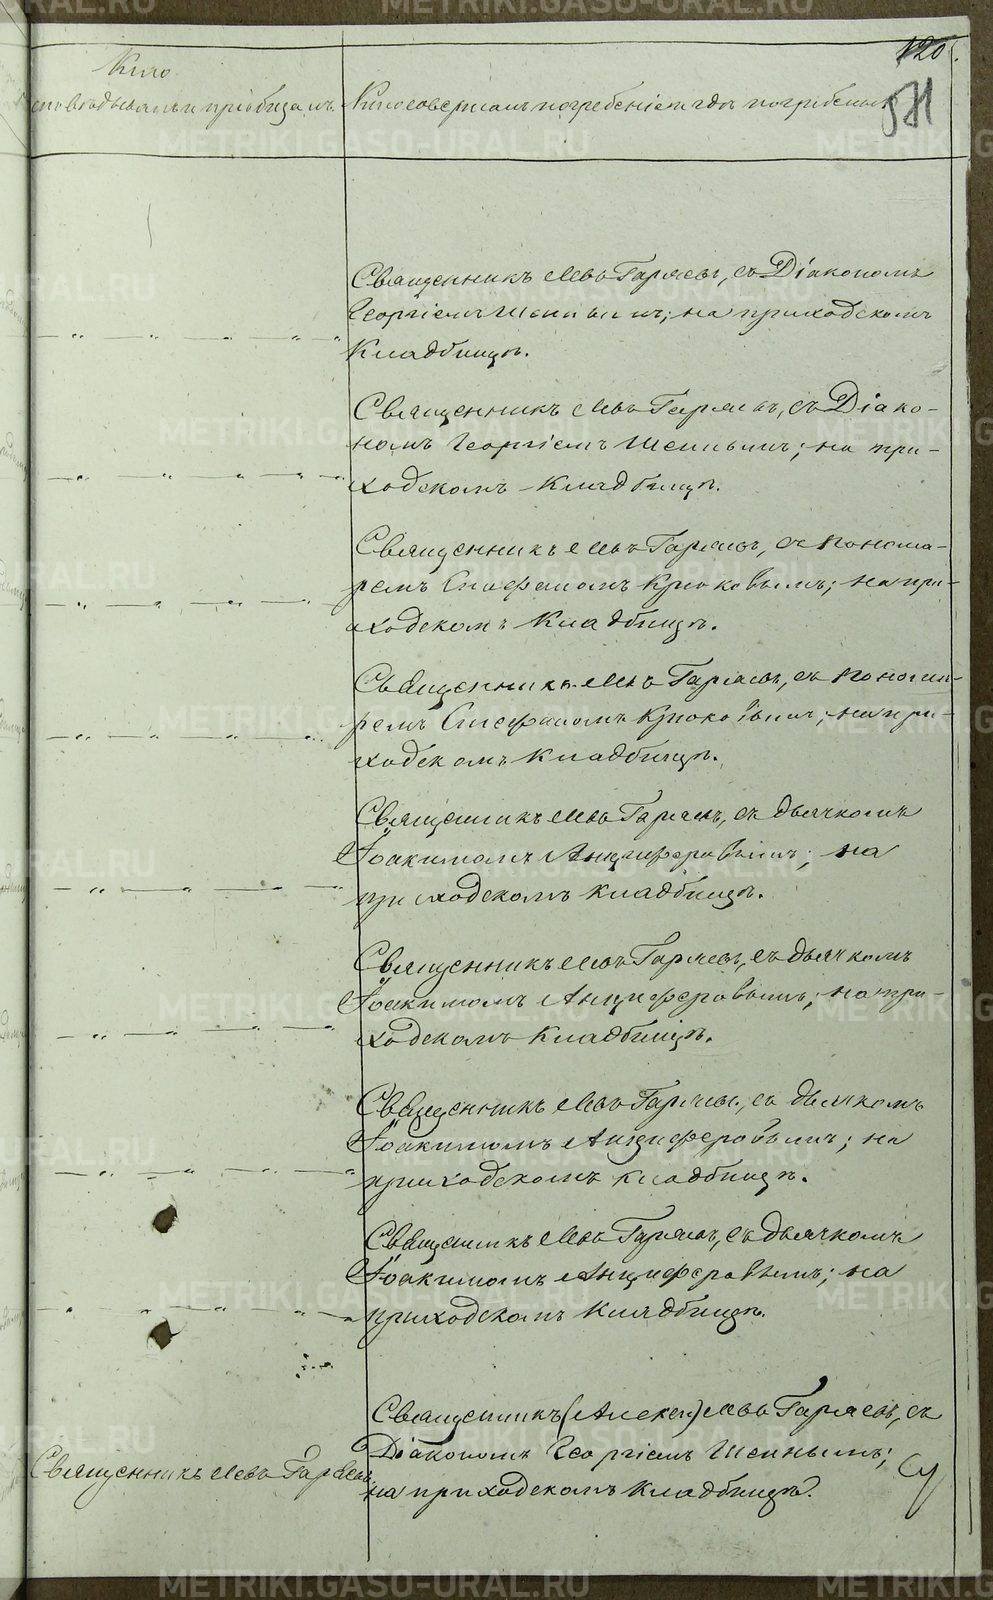 120.
571
Кто
исповѣдывалъ и пріобщалъ.
Кто совершалъ погребеніе и гдѣ погребены.
Священникъ Левъ Гаряевъ, съ Діакономъ
Георгіемъ Шеиннымъ; на приходскомъ
Кладбищѣ.
Священникъ Левъ Гаряевъ, съ Діако-
номъ Георгіемъ Шеиннымъ; на при-
ходскомъ Кладбищѣ.
Священникъ Левъ Гаряевъ, съ Понома-
ремъ Стефаномъ Крюковымъ; на при-
ходскомъ Кладбищѣ.
Священникъ Левъ Гаряевъ, съ Понома-
ремъ Стефаномъ Крюковымъ; на при-
ходскомъ Кладбищѣ.
Священникъ Левъ Гаряевъ, съ дьячкомъ
Іоакимомъ Анциферовымъ; на
приходскомъ Кладбищѣ.
Священникъ Левъ Гаряевъ, съ дьячкомъ
Іоакимомъ Анциферовымъ; на при-
ходскомъ Кладбищѣ.
Священникъ Левъ Гаряевъ, съ дьячкомъ
Іоакимомъ Анциферовымъ; на
приходскомъ кладбищѣ.
Священникъ Левъ Гаряевъ, съ Дьячкомъ
Іоакимомъ Анциферовымъ; на
приходскомъ Кладбищѣ.
Священникъ (Алекс) Левъ Гаряевъ, съ
Діакономъ Георгіемъ Шеиннымъ;
Священникъ Левъ Гаряевъ.
на приходскомъ Кладбищѣ.
METRIKI.GASO-URAL.RU